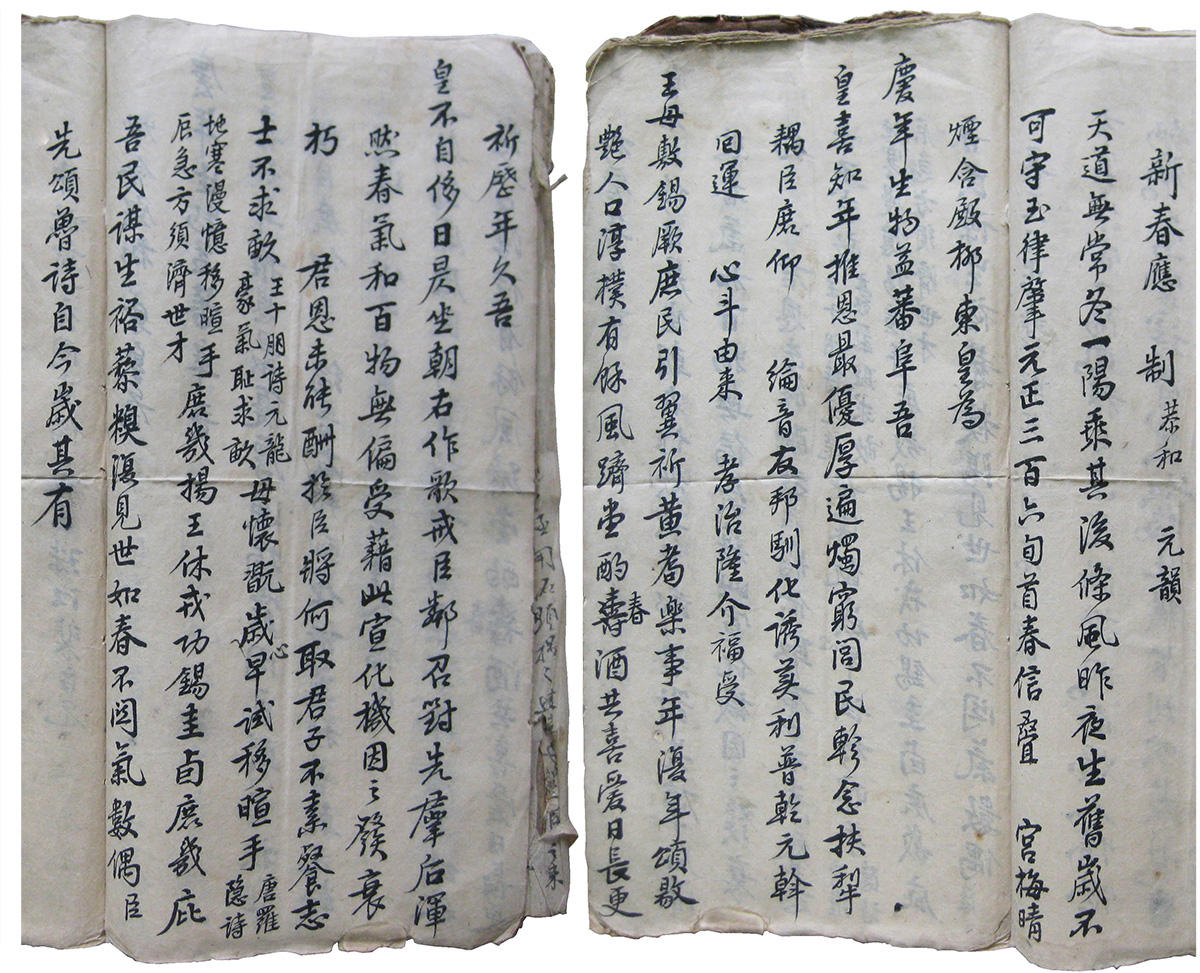 新春應 制 恭和 元韻
天道無常冬一陽乘其後條風昨夜生舊歲不
可守玉律肇元正三百六旬首春信疊 宮梅晴
煙含殿柳東皇為
慶年生物益蕃阜吾
皇喜知年推恩最優厚遍燭窮閭民軫念扶犁
耦臣庶仰 綸音友邦馴化誘美利普乾元斡
回運 心斗由來 孝治隆介福受
王母敷錫厥庶民引翼祈黄耇樂事年復年頌敭
艷人口淳樸有餘風躋堂酌春壽酒共喜愛日長更
祈歷年久吾
皇不自侈日昃坐朝右作歌戒臣鄰召對先羣后渾
然春氣和百物無偏受藉此宣化機因之發衰
朽 君恩未能酬撫臣將何取君子不素餐志
士不求畝 王十朋詩元龍豪氣耻求畝 毋懷翫歲心早試移暄手 唐羅隐詩
地寒漫憶移暄手辰急方須濟世才 庶幾揚王休戎功錫圭卣庶幾庇
吾民謀生裕藜糗復見世如春不関氣數偶臣
先頌魯詩自今歲其有